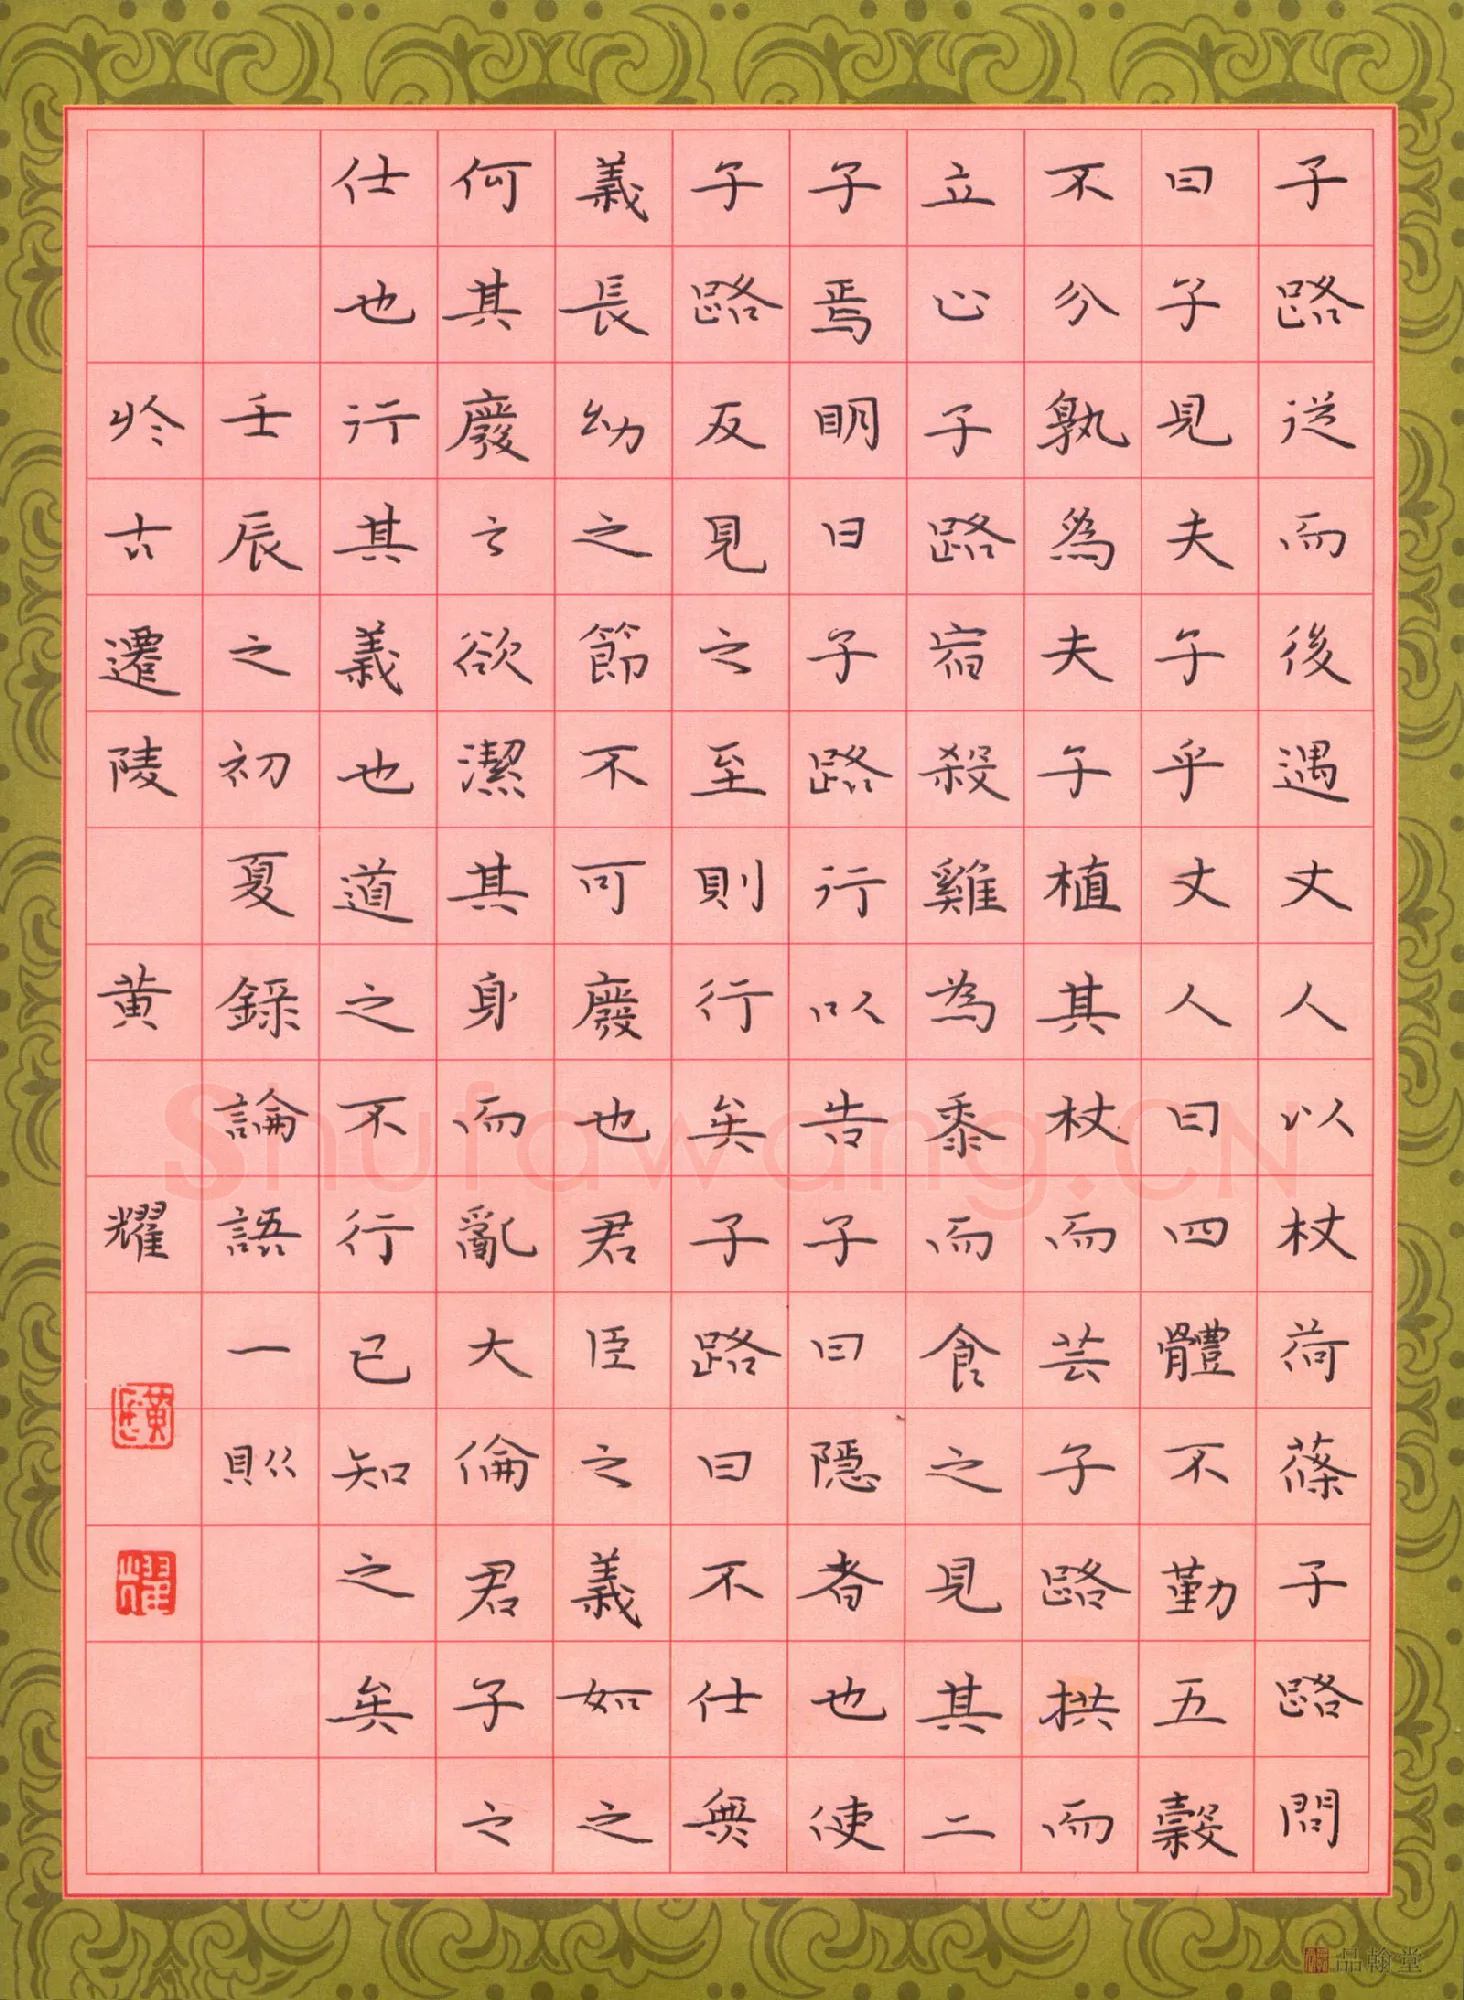 子路從而後遇丈人以杖荷蓧子路問
曰子見夫子乎丈人曰四體不勤五穀
不分孰為夫子植其杖而芸子路拱而
立止子路宿殺雞為黍而食之見其二
子焉明日子路行以告子曰隱者也使
子路反見之至則行矣子路曰不仕無
義長幼之節不可廢也君臣之義如之
何其廢之欲潔其身而亂大倫君子之
仕也行其義也道之不行已知之矣
壬辰之初夏錄論語一則
於古遷陵黃耀
耀
Shufawang.CN
品翰堂